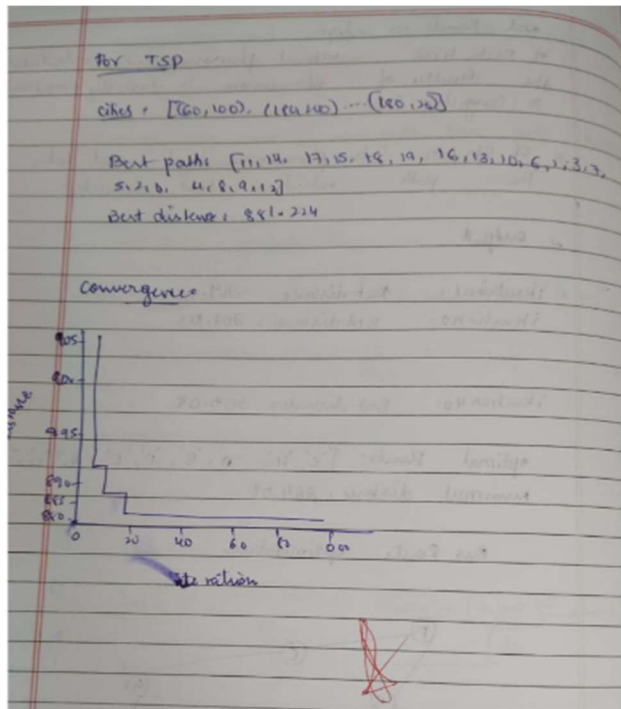 For TSP
cities = [(60,100), (180,200) .... (180,20)]
Best path: [11, 14, 17, 15, 18, 19, 16, 13, 10, 6, 1, 3, 7,
5, 2, 0, 4, 8, 9, 12]
Best distance: 881.224
Convergence
905
900
895
890
885
880
0 20 40 60 80 100
Iteration